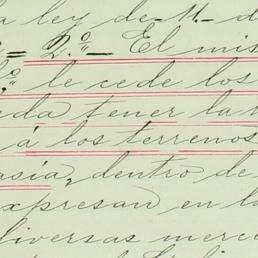 la ley de 11 d
= 2º= El mis
º le cede los
eda tener la
á los terrenos
asia, dentro de
xpresan en la
diversas merc